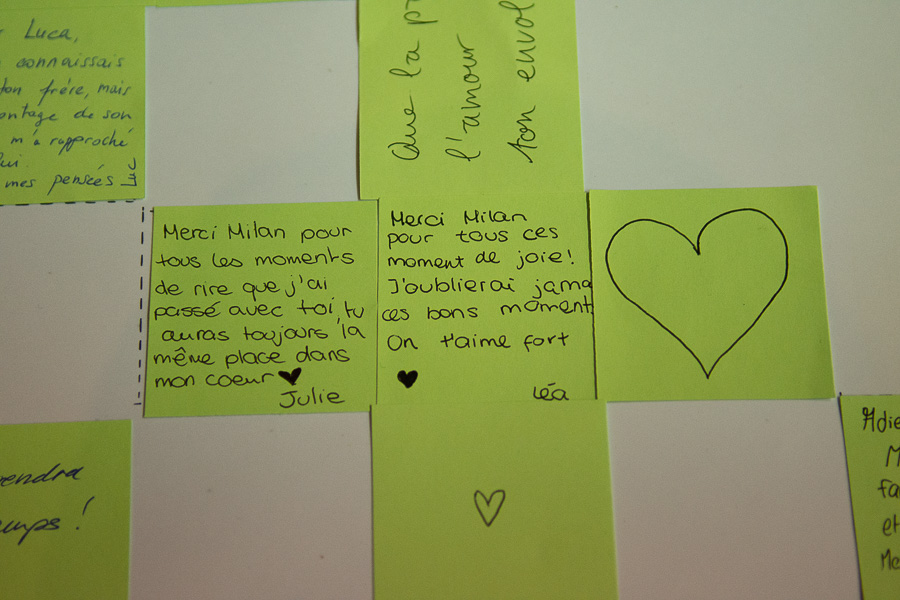 Luca,
connaissais
ton frère, mais
montage de son
m'a rapproché
lui.
mes pensées
Que la
l'amour
ton envol
Merci Milan pour
tous les moments
de rire que j'ai
passé avec toi, tu
auras toujours la
même place dans
mon coeur
Julie
Merci Milan
pour tous ces
moment de joie!
J'oublierai jama
ces bons moment
On t'aime fort
Léa
Adie
M
fa
et
Me